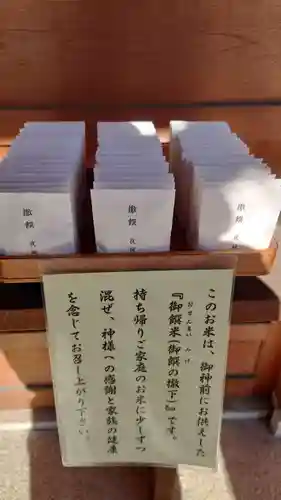 撤饌
撤饌
撤饌
このお米は、御神前にお供えした
『御饌米(御饌の撤下)』です。
おせんまい
みけ
持ち帰りご家庭のお米に少しずつ
混ぜ、神様への感謝と家族の健康
を念じてお召し上がり下さい。